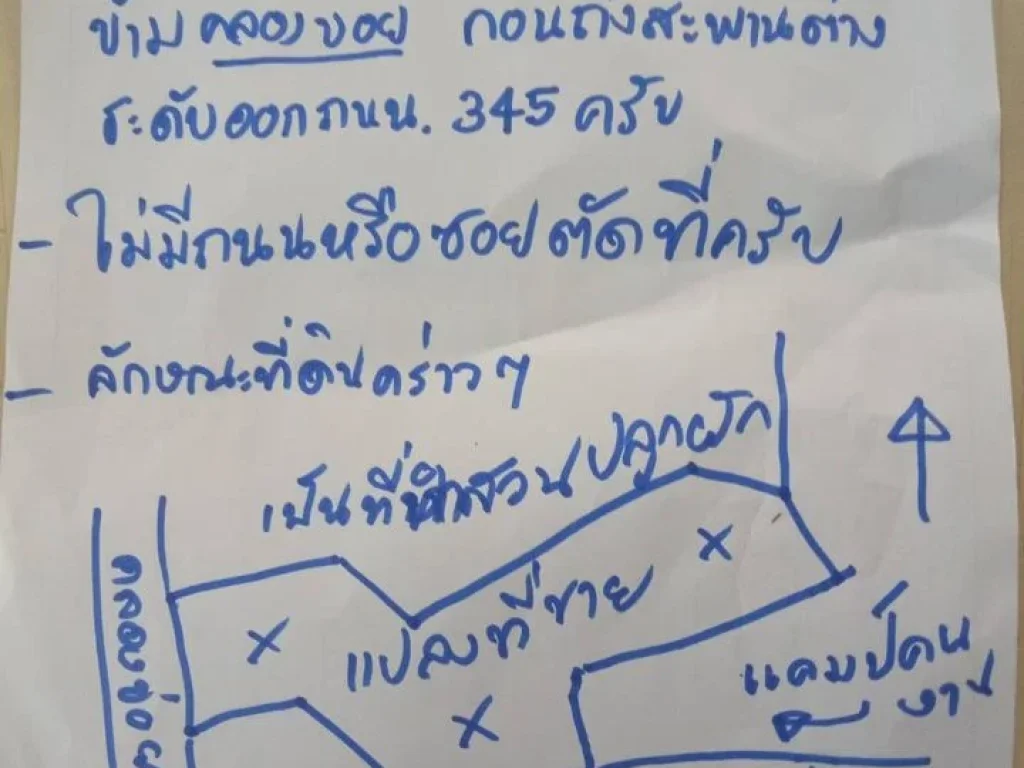 ข้ามคลองขอย ก่อนถึงสะพานต่าง
ระดับออกถนน. 345 ครับ
- ไม่มีถนนหรือซอยตัดที่ครับ
- ลักษณะที่ดินคร่าวๆ
เป็นที่ สวนปลูกผัก
คลองข่อย
แปลงที่ขาย
แคมป์คน
งาน